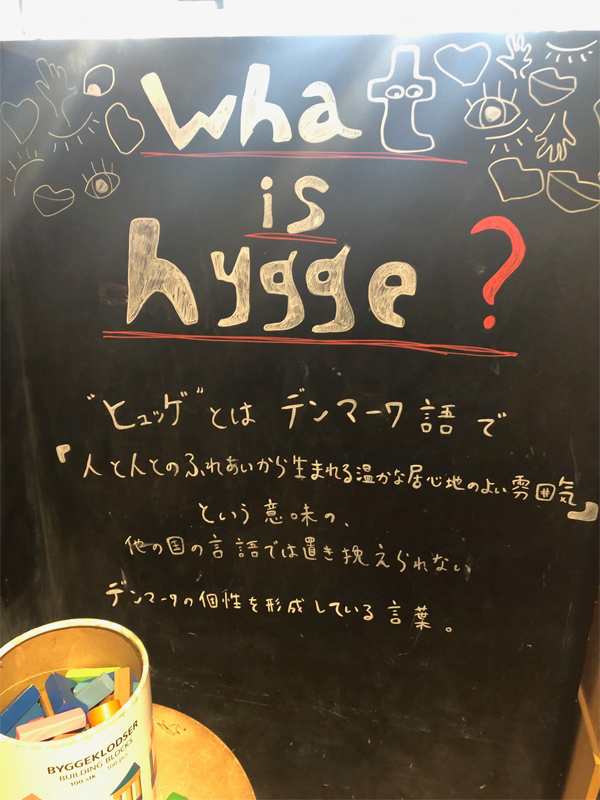 What
is
hygge?
"ヒュッゲ"とは デンマーク語で
『人と人とのふれあいから生まれる温かな居心地のよい雰囲気』
という意味の、
他の国の言語では置き換えられない
デンマークの個性を形成している言葉。
BYGGEKLODSER
BUILDING BLOCKS
100 stk 100 pcs